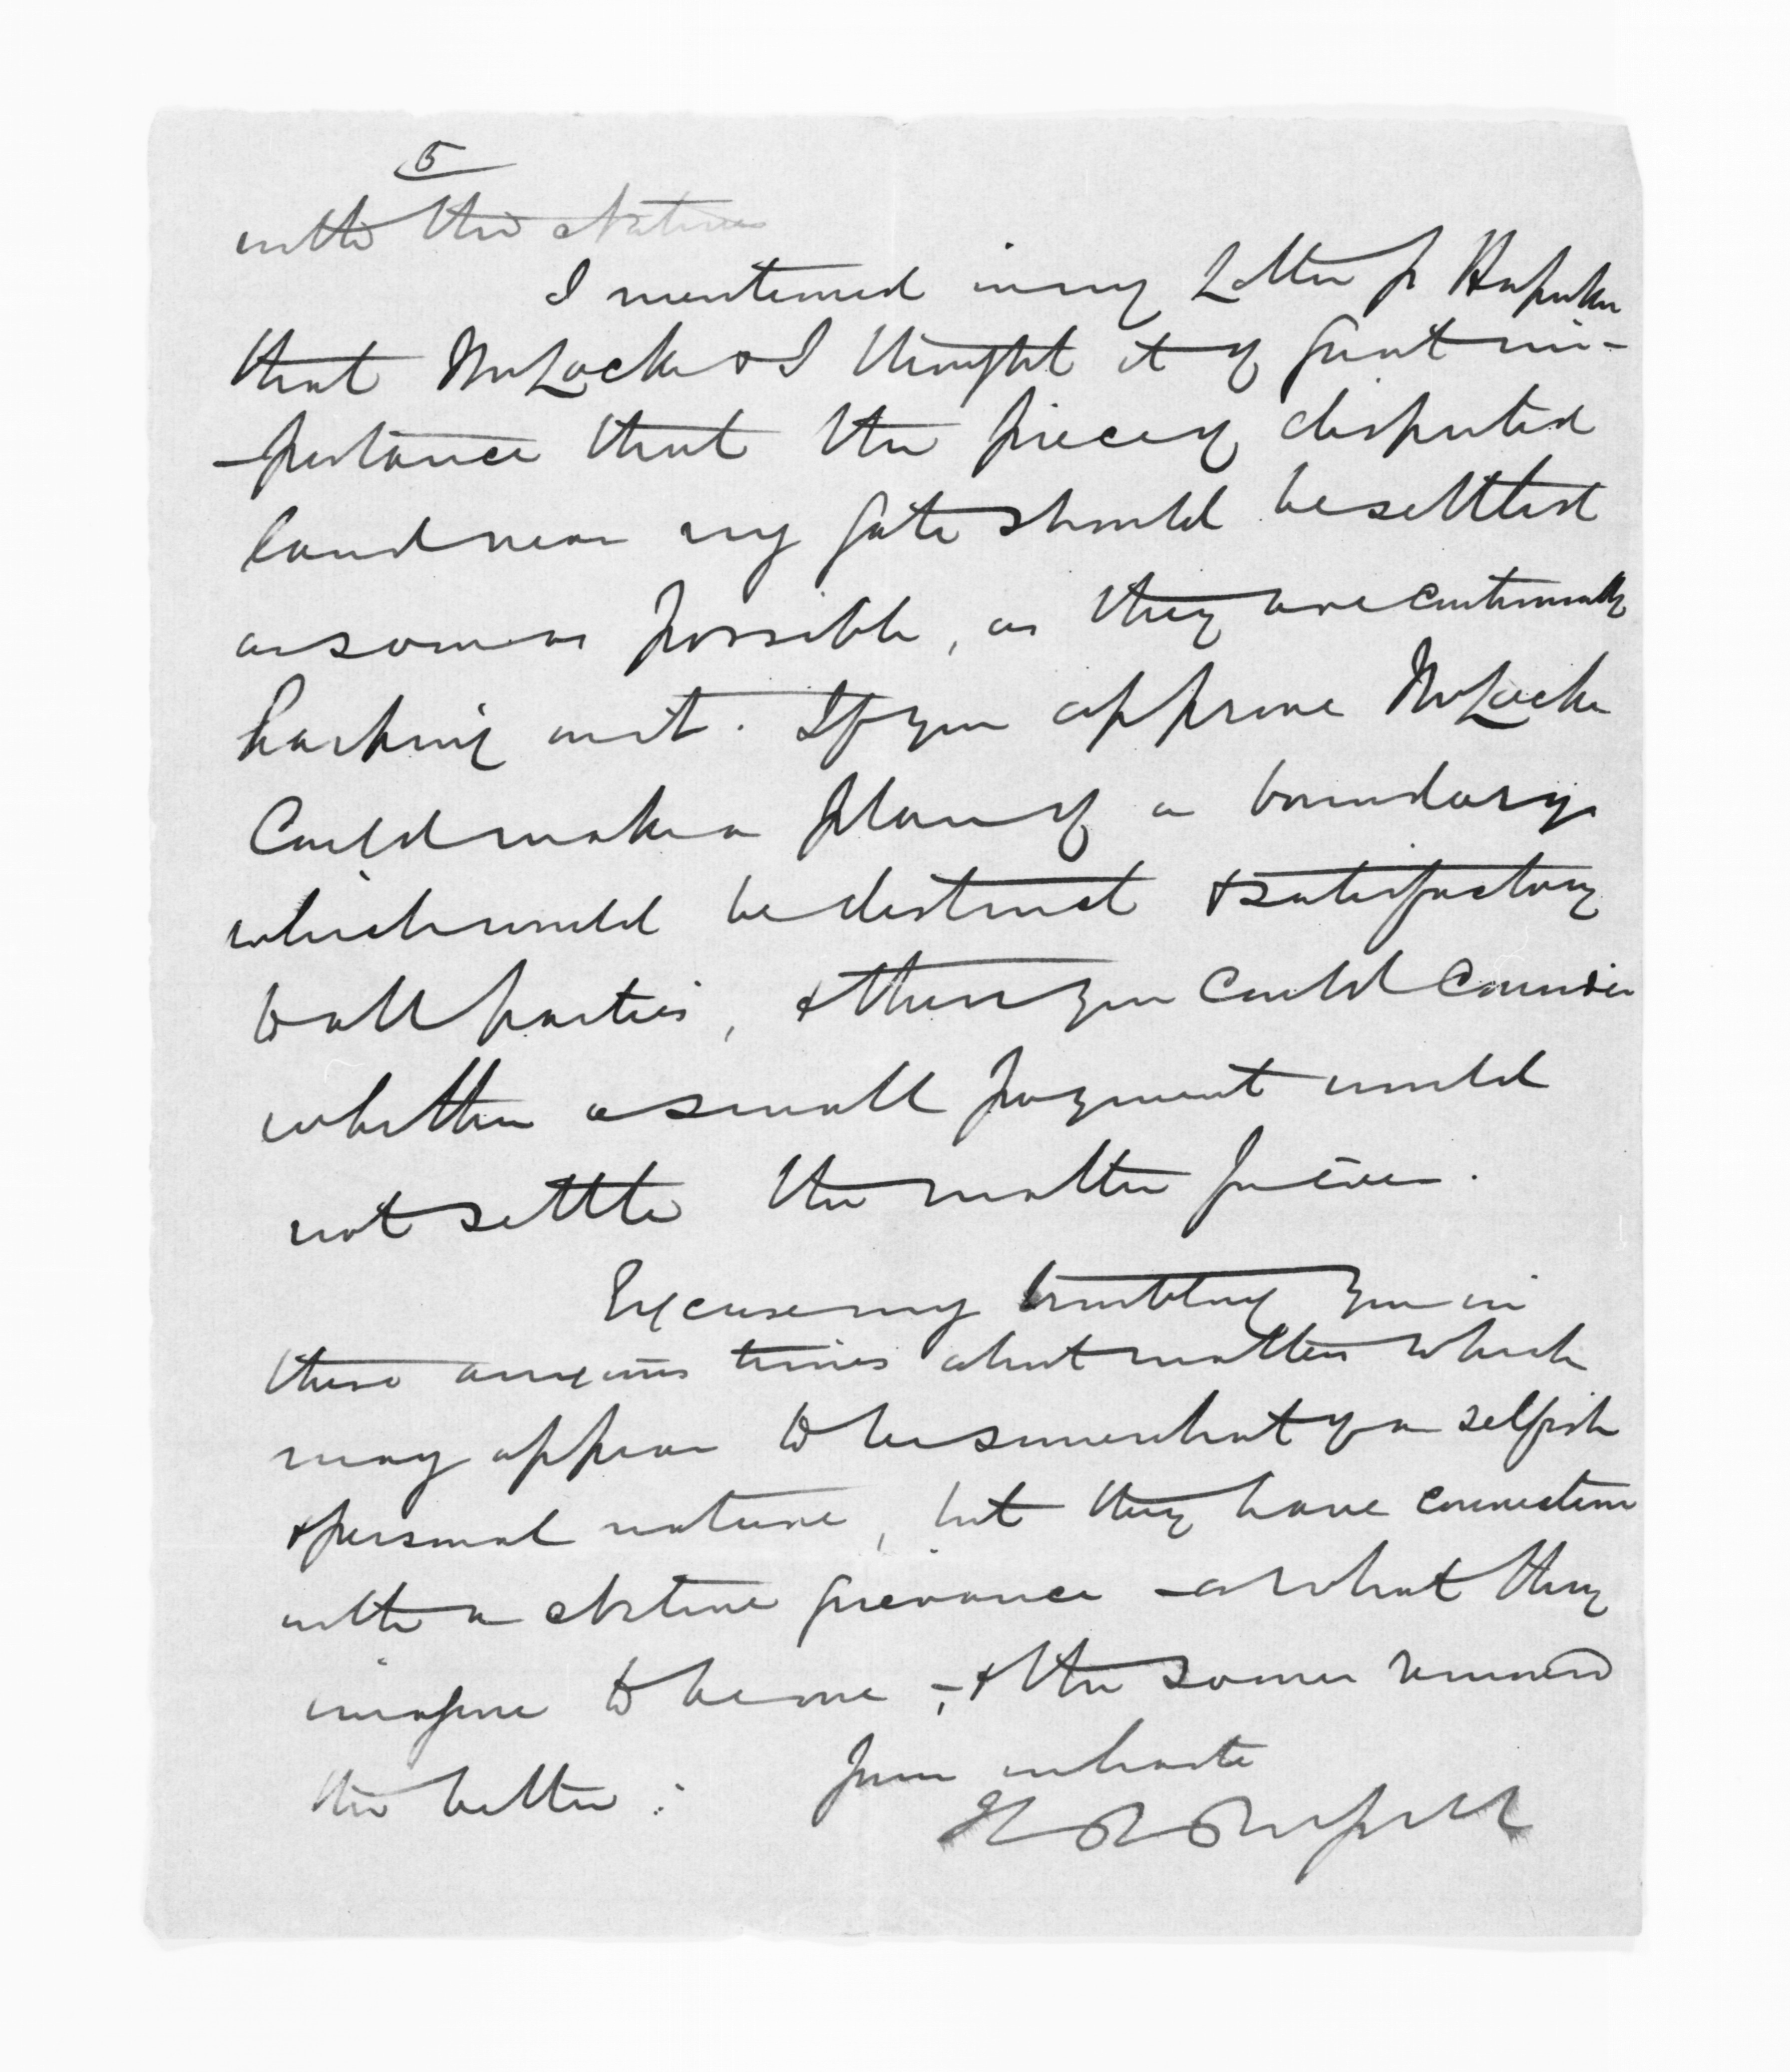 5
with the Natives
I mentioned in my Letter pr Hapuku
that Mr Locke & I thought it of great im-
-portance that the piece of disputed
land near my gate should be settled
as soon as possible, as they are continually
harping on it. If you approve Mr Locke
Could make a plan of a boundary
which would be distinct & satisfactory
to all parties, & then you Could Consider
whether a small payment would
not settle the matter for ever.
Excuse my troubling you in
these anxious times about matters which
may appear to be somewhat of a selfish
& personal nature, but they have connection
with a Native grievance - or what they
imagine to be one -, & the sooner removed
the better:
Yours in haste
H R Russell